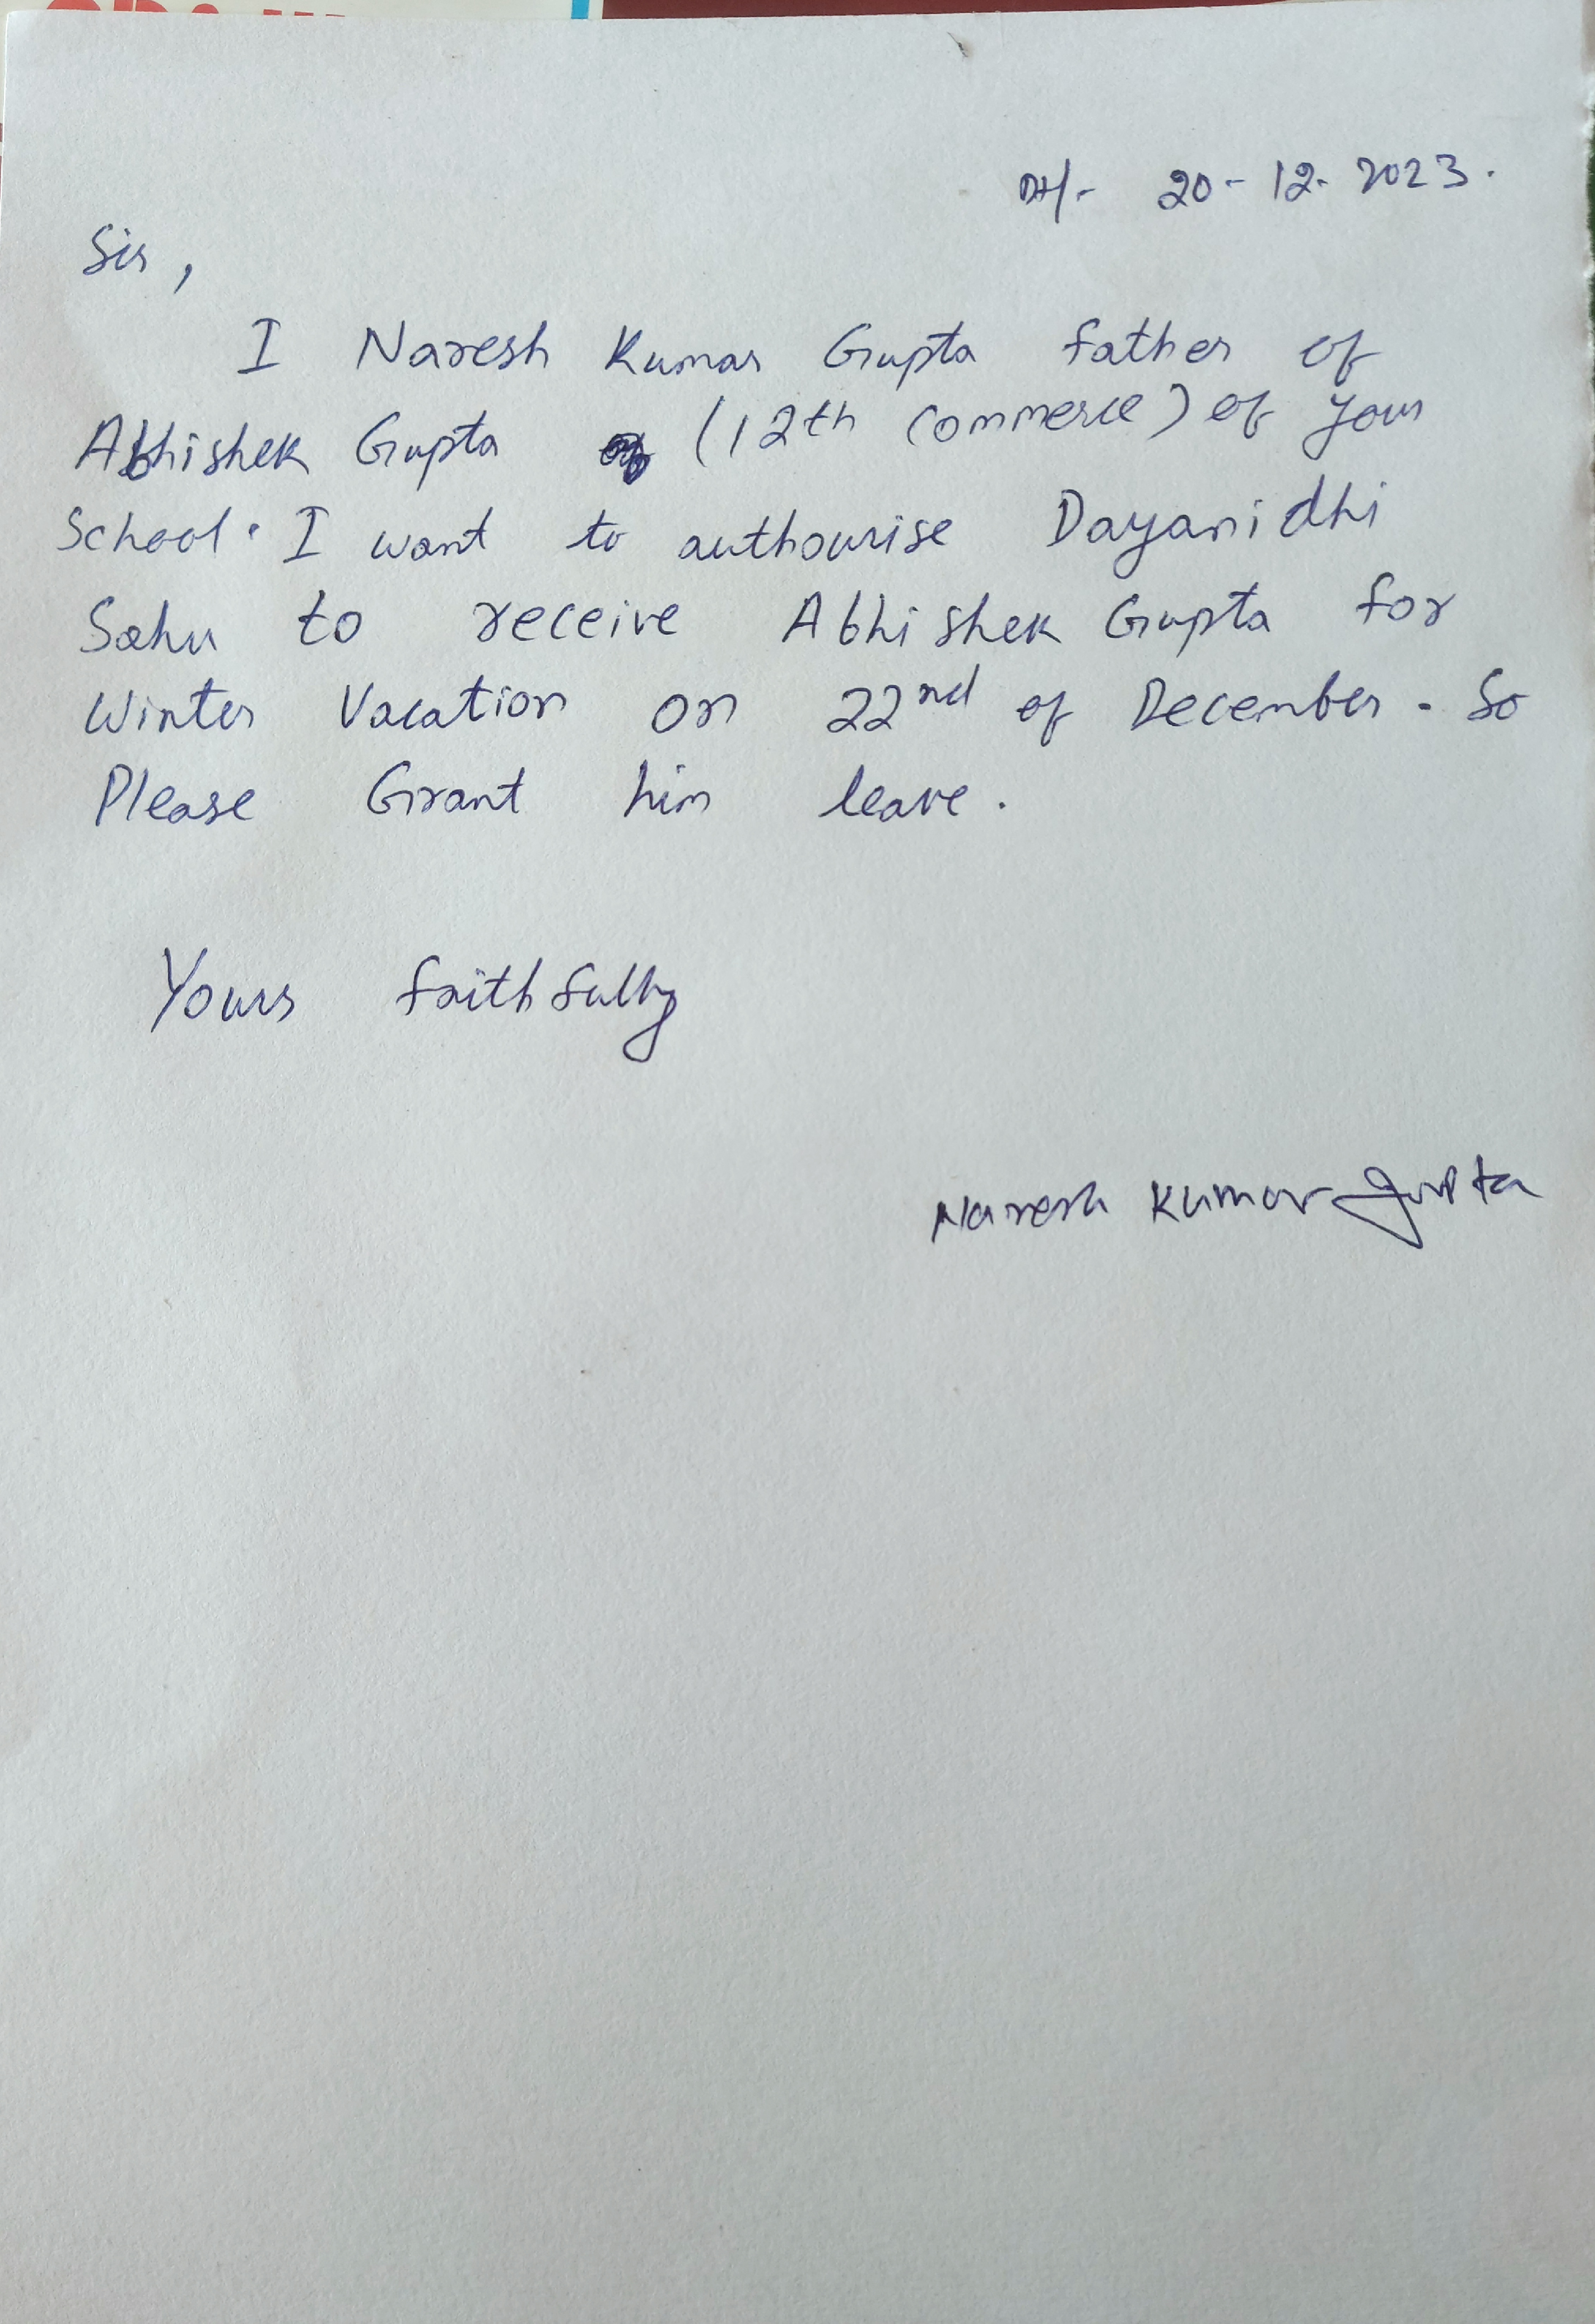 Dt/- 20-12-2023.
Sir,
I Naresh Kumar Gupta father of
Abhishek Gupta (12th Commerce) of your
School. I want to authourise Dayanidhi
Sahu to receive Abhishek Gupta for
Winter Vacation on 22nd of December. So
Please Grant him leave.
Yours faithfully
Naresh Kumar Gupta